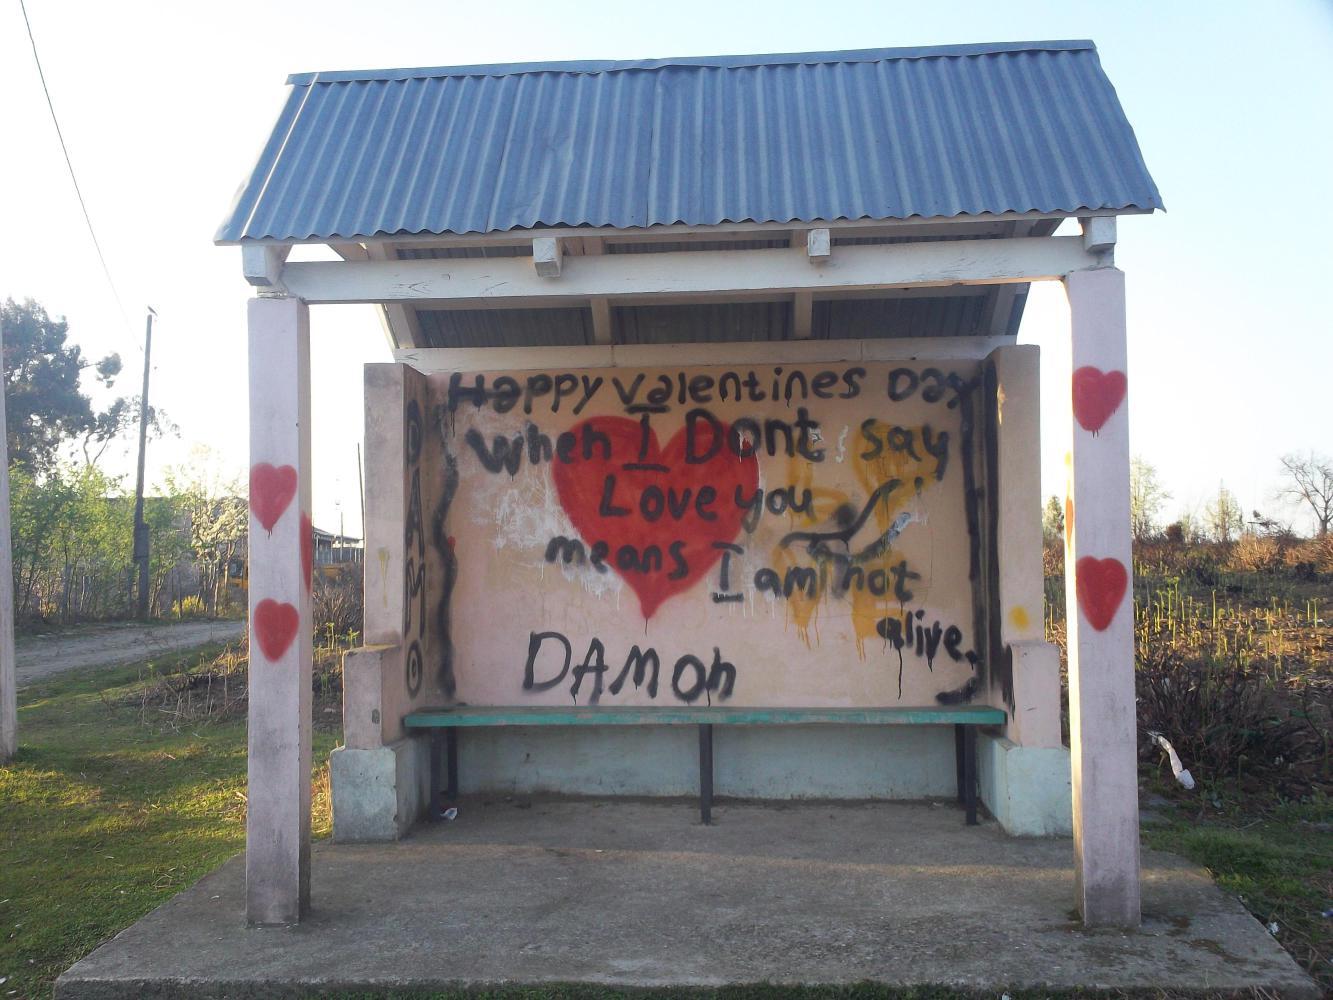 Happy valentines Day
When I Dont say
Love you
means I am not
alive.
DAMON
DAMO